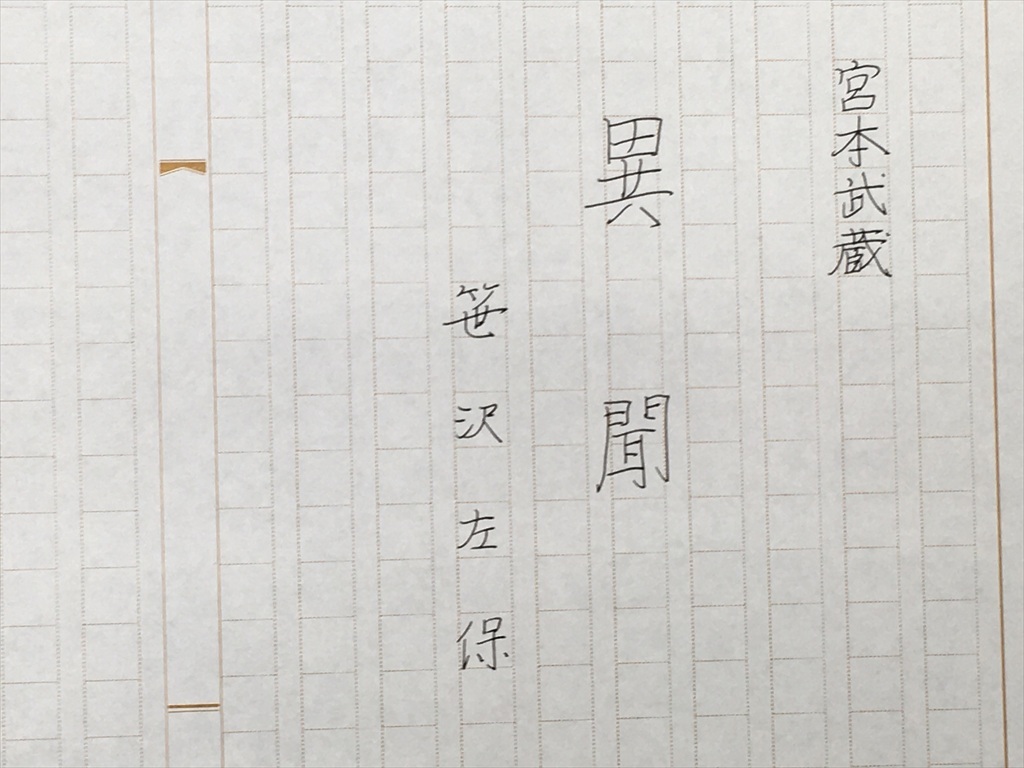 宮本武蔵
異聞
笹沢左保